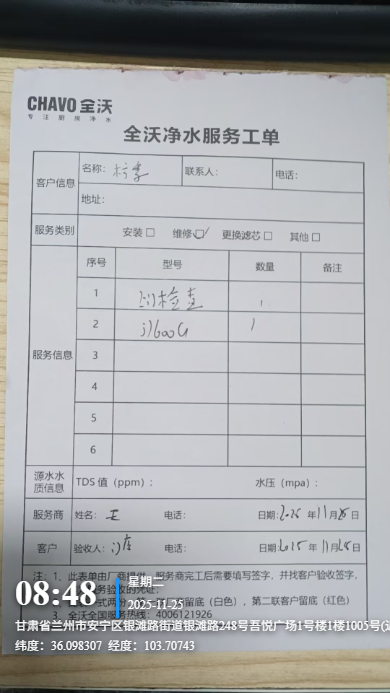 CHAVO 全沃
专注厨房净水
全沃净水服务工单
客户信息 名称: 联系人: 电话:
地址:
服务类别 安装□ 维修☑ 更换滤芯□ 其他□
服务信息 序号 型号 数量 备注
1 检查 1
2 600G 1
3
4
5
6
源水水质信息 TDS 值 (ppm): 水压 (mpa):
服务商 姓名: 王 电话: 日期: 2025 年 11 月 25 日
客户 验收人: 电话: 日期: 2025 年 11 月 25 日
注: 1、此表单由厂商提供,服务商完工后需要填写签字,并找客户验收签字,
留底(白色),第二联客户留底(红色)
3、全沃全国服务热线: 4006121926
08:48 星期二
2025-11-25
甘肃省兰州市安宁区银滩路街道银滩路248号吾悦广场1号楼1楼1005号
纬度: 36.098307 经度: 103.70743